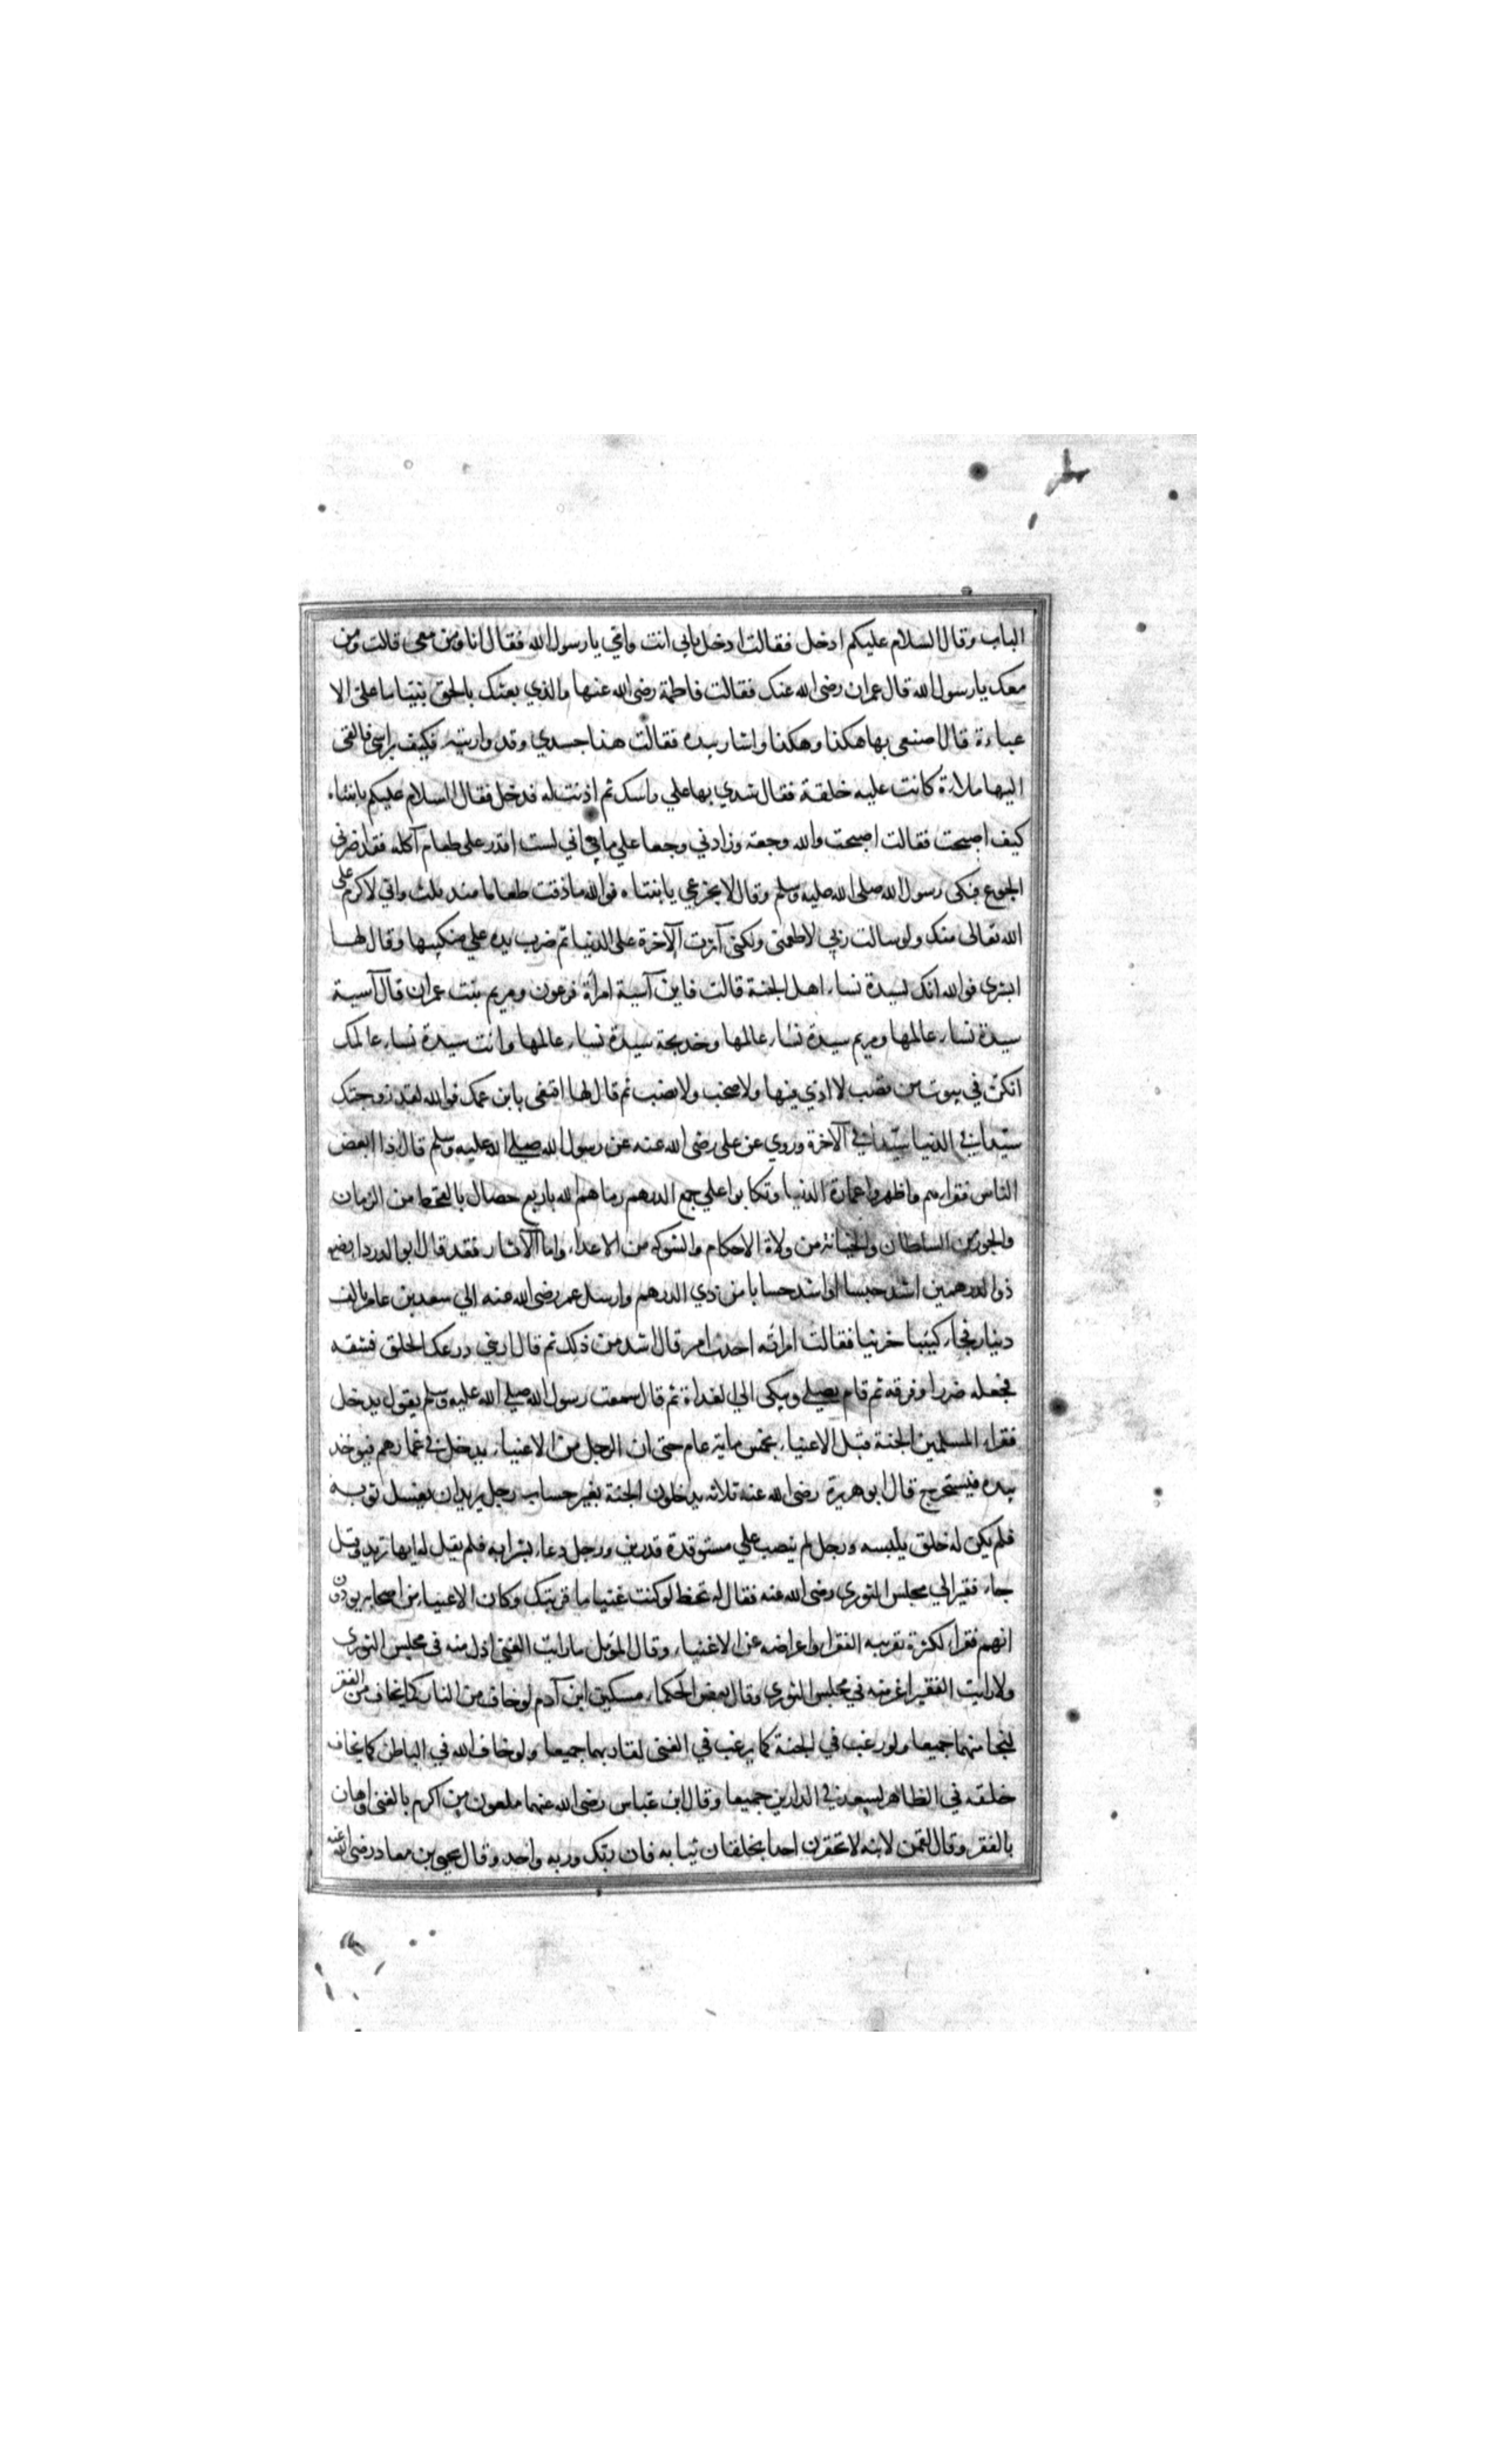 الباب وقال السلام عليكم ادخل فقالت ادخل بابي انت وامي يا رسول الله فقال انا ومن معي قالت ومن
معك يا رسول الله قال عمران رضى الله عنك فقالت فاطمة رضى الله عنها والذي بعثك بالحق نبيا ما على الا
عباءة قال اصنعى بها هكذا وهكذا واشار بيده فقالت هذا جسدي وقد واريته فكيف براسي فالقى
اليها ملاءة كانت عليه خلقة فقال شدي بها علي راسك ثم اذنت له فدخل فقال السلام عليكم يا بنتاه
كيف اصبحت فقالت اصبحت والله وجعة وزادني وجعا علي ما بي اني لست اقدر على طعام آكله فقد اضرني
الجوع فبكى رسول الله صلى الله عليه وسلم وقال لا تجزعي يا ابنتاه فوالله ما ذقت طعاما منذ ثلث واني لاكرم على
الله تعالى منك ولو سالت ربي لاطعمنى ولكنى آثرت الآخرة على الدنيا ثم ضرب بيده علي منكبيها وقال لها
ابشري فوالله انك لسيدة نساء اهل الجنة قالت فاين آسية امرأة فرعون ومريم بنت عمران قال آسية
سيدة نساء عالمها ومريم سيدة نساء عالمها وخديجة سيدة نساء عالمها وانت سيدة نساء عالمك
انكن في بيوت من قصب لا اذي فيها ولا صخب ولا نصب ثم قال لها اقنعى بابن عمك فوالله لقد زوجتك
سيدا في الدنيا سيدا في الآخرة وروي عن على رضى الله عنه عن رسول الله صلي الله عليه وسلم قال اذا ابغض
الناس فقراءهم واظهروا عمارة الدنيا وتكالبوا علي جمع الدرهم رماهم الله باربع خصال بالقحط من الزمان
والجور من السلطان والخيانة من ولاة الاحكام والشوكة من الاعداء واما الآثار فقد قال ابو الدرداء رضه
ذو الدرهمين اشد حبسا او اشد حسابا من ذي الدرهم وارسل عمر رضى الله عنه الي سعد بن عامر بالف
دينار فجاء كئيبا حزينا فقالت امراته احدث امر قال اشد من ذلك ثم قال ارني درعك الخلق فشقه
فجعله صررا وفرقه ثم قام يصلي ويبكى الي الغداة ثم قال سمعت رسول الله صلي الله عليه وسلم يقول يدخل
فقراء المسلمين الجنة قبل الاغنياء بخمس ماية عام حتى ان الرجل من الاغنياء يدخل في غمارهم فيوخذ
بيده فيستخرج قال ابو هريرة رضى الله عنه ثلاثه يدخلون الجنة بغير حساب رجل يريد ان يغسل ثوبه
فلم يكن له خلق يلبسه ورجل لم ينصب علي مستوقدة قدرين ورجل دعاء بشرابه فلم يقل له ايها تريد وقيل
جاء فقير الي مجلس الثوري رضى الله عنه فقال له تخط لو كنت غنيا ما قربتك وكان الاغنياء من اصحابه يودون
انهم فقراء لكثرة تقريبه الفقراء واعراضه عن الاغنياء وقال المؤمل ما رايت الغنى اذل منه في مجلس الثوري
ولا رايت الفقير اعز منه في مجلس الثوري وقال بعض الحكماء مسكين ابن آدم لو خاف من النار كما يخاف من الفقر
لنجا منهما جميعا ولو رغب في الجنة كما يرغب في الغنى لفاز بهما جميعا ولو خاف الله في الباطن كما يخاف
خلقه في الظاهر لسعد في الدارين جميعا وقال ابن عباس رضى الله عنهما ملعون من اكرم بالغنى واهان
بالفقر وقال لقمن لابنه لا تحقرن احدا بخلقان ثيابه فان ربك وربه واحد وقال يحيى بن معاذ رضى الله عنه